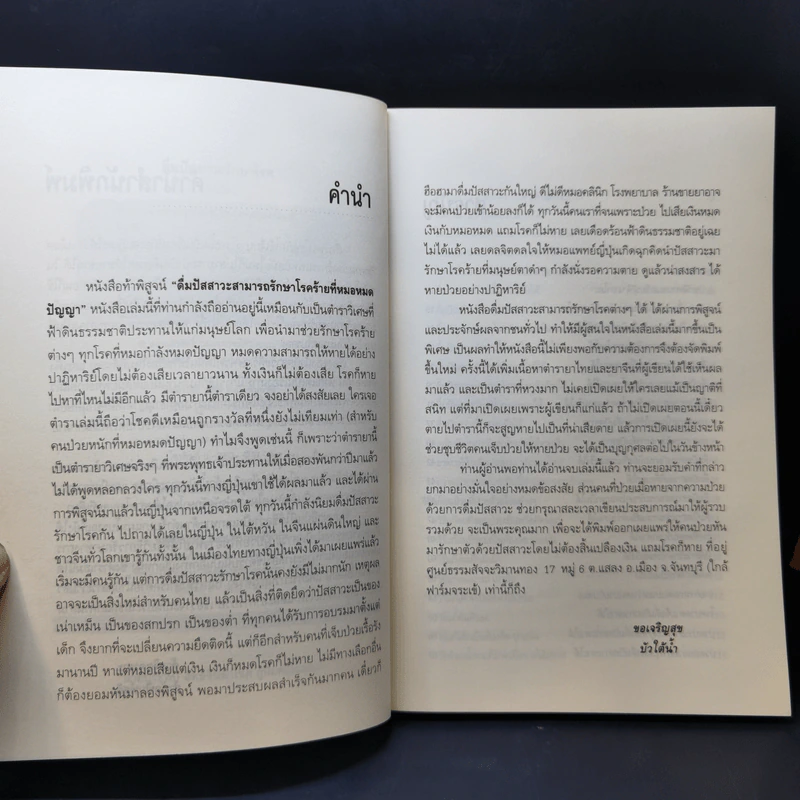 คำนำ
หนังสือท้าพิสูจน์ "ดื่มปัสสาวะสามารถรักษาโรคร้ายที่หมอหมด
ปัญญา" หนังสือเล่มนี้ที่ท่านกำลังถืออ่านอยู่นี้เหมือนกับเป็นตำราวิเศษที่
ฟ้าดินธรรมชาติประทานให้แก่มนุษย์โลก เพื่อนำมาช่วยรักษาโรคร้าย
ต่างๆ ทุกโรคที่หมอกำลังหมดปัญญา หมดความสามารถให้หายได้อย่าง
ปาฏิหาริย์โดยไม่ต้องเสียเวลายาวนาน ทั้งเงินก็ไม่ต้องเสีย โรคก็หาย
ไปหาที่ไหนไม่มีอีกแล้ว มีตำรายานี้ตำราเดียว จงอย่าได้สงสัยเลย ใครเจอ
ตำราเล่มนี้ถือว่าโชคดีเหมือนถูกรางวัลที่หนึ่งยังไม่เทียมเท่า (สำหรับ
คนป่วยหนักที่หมอหมดปัญญา) ทำไมจึงพูดเช่นนี้ ก็เพราะว่าตำรายานี้
เป็นตำรายาวิเศษจริงๆ ที่พระพุทธเจ้าประทานให้เมื่อสองพันกว่าปีมาแล้ว
ไม่ได้พูดหลอกลวงใคร ทุกวันนี้ทางญี่ปุ่นเขาใช้ได้ผลมาแล้ว และได้ผ่าน
การพิสูจน์มาแล้วในญี่ปุ่นจากเหนือจรดใต้ ทุกวันนี้กำลังนิยมดื่มปัสสาวะ
รักษาโรคกัน ไปถามได้เลยในญี่ปุ่น ในไต้หวัน ในจีนแผ่นดินใหญ่ และ
ชาวจีนทั่วโลกเขารู้กันทั้งนั้น ในเมืองไทยทางญี่ปุ่นเพิ่งได้มาเผยแพร่แล้ว
เริ่มจะมีคนรู้กัน แต่การดื่มปัสสาวะรักษาโรคนั้นคงยังมีไม่มากนัก เหตุผล
อาจจะเป็นสิ่งใหม่สำหรับคนไทย แล้วเป็นสิ่งที่ยึดถือว่าปัสสาวะเป็นของ
เน่าเหม็น เป็นของสกปรก เป็นของต่ำ ที่ทุกคนได้รับการอบรมมาตั้งแต่
เด็ก จึงยากที่จะเปลี่ยนความยึดติดนี้ แต่ก็อีกสำหรับคนที่เจ็บป่วยเรื้อรัง
มานานปี หาแต่หมอเสียแต่เงิน เงินก็หมดโรคก็ไม่หาย ไม่มีทางเลือกอื่น
ก็ต้องยอมหันมาลองพิสูจน์ พอมาประสบผลสำเร็จกันมากคน เดี๋ยวก็
ฮือฮามาดื่มปัสสาวะกันใหญ่ ดีไม่ดีหมอคลินิก โรงพยาบาล ร้านขายยาอาจ
จะมีคนป่วยเข้าน้อยลงก็ได้ ทุกวันนี้คนเราที่จนเพราะป่วย ไปเสียเงินหมด
เงินกับหมอหมด แถมโรคก็ไม่หาย เลยเดือดร้อนฟ้าดินธรรมชาติอยู่เฉย
ไม่ได้แล้ว เลยดลจิตดลใจให้หมอแพทย์ญี่ปุ่นเกิดฉุกคิดนำปัสสาวะมา
รักษาโรคร้ายที่มนุษย์ตาดำๆ กำลังนั่งรอความตาย ดูแล้วน่าสงสาร ได้
หายป่วยอย่างปาฏิหาริย์
หนังสือดื่มปัสสาวะสามารถรักษาโรคต่างๆ ได้ ได้ผ่านการพิสูจน์
และประจักษ์ผลจากชนทั่วไป ทำให้มีผู้สนใจในหนังสือเล่มนี้มากขึ้นเป็น
พิเศษ เป็นผลทำให้หนังสือนี้ไม่เพียงพอกับความต้องการจึงต้องจัดพิมพ์
ขึ้นใหม่ ครั้งนี้ได้เพิ่มเนื้อหาตำรายาไทยและยาจีนที่ผู้เขียนได้ใช้เห็นผล
มาแล้ว และเป็นตำราที่หวงมาก ไม่เคยเปิดเผยให้ใครเลยแม้เป็นญาติที่
สนิท แต่ที่มาเปิดเผยเพราะผู้เขียนก็แก่แล้ว ถ้าไม่เปิดเผยตอนนี้เดี๋ยว
ตายไปตำรานี้ก็จะสูญหายไปเป็นที่น่าเสียดาย แล้วการเปิดเผยนี้ยังจะได้
ช่วยชุบชีวิตคนเจ็บป่วยให้หายป่วย จะได้เป็นบุญกุศลต่อไปในวันข้างหน้า
ท่านผู้อ่านพอท่านได้อ่านจบเล่มนี้แล้ว ท่านจะยอมรับคำที่กล่าว
ยกมาอย่างมั่นใจอย่างหมดข้อสงสัย ส่วนคนที่ป่วยเมื่อหายจากความป่วย
ด้วยการดื่มปัสสาวะ ช่วยกรุณาสละเวลาเขียนประสบการณ์มาให้ผู้รวบ
รวมด้วย จะเป็นพระคุณมาก เพื่อจะได้พิมพ์ออกเผยแพร่ให้คนป่วยหัน
มารักษาตัวด้วยปัสสาวะโดยไม่ต้องสิ้นเปลืองเงิน แถมโรคก็หาย ที่อยู่
ศูนย์ธรรมสัจจะวิมานทอง 17 หมู่ 6 ต.แสลง อ.เมือง จ.จันทบุรี (ใกล้
ฟาร์มจระเข้) เท่านี้ก็ถึง
ขอเจริญสุข
บัวใต้น้ำ